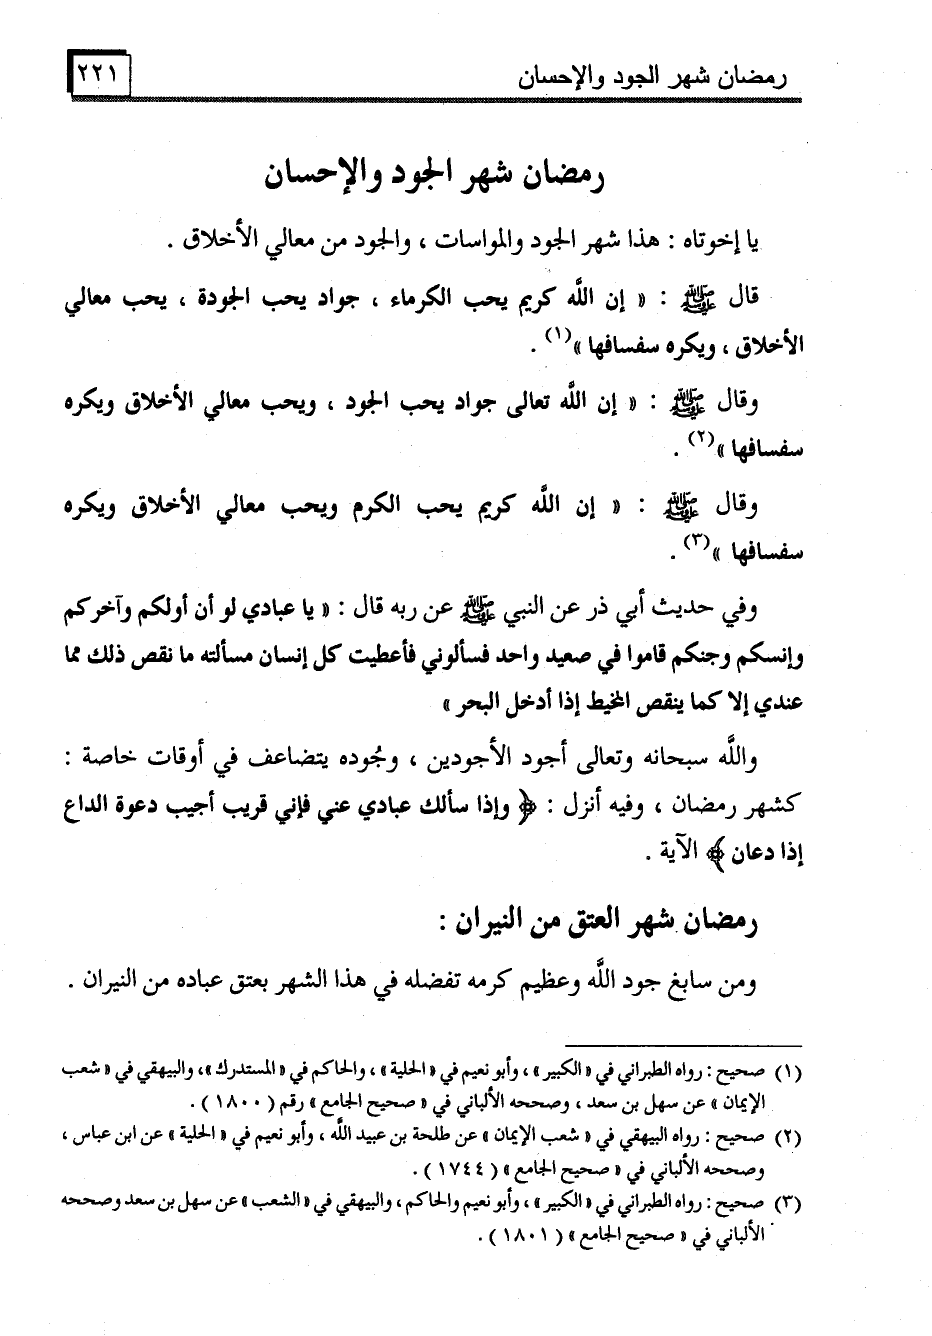 رمضان شهر الجود والإحسان
٢٢١
رمضان شهر الجود والإحسان
يا إخوتاه : هذا شهر الجود والمواسات ، والجود من معالي الأخلاق .
قال ﷺ : « إن اللَّه كريم يحب الكرماء ، جواد يحب الجودة ، يحب معالي
الأخلاق ، ويكره سفسافها »(١) .
وقال ﷺ : « إن اللَّه تعالى جواد يحب الجود ، ويحب معالي الأخلاق ويكره
سفسافها »(٢) .
وقال ﷺ : « إن اللَّه كريم يحب الكرم ويحب معالي الأخلاق ويكره
سفسافها »(٣) .
وفي حديث أبي ذر عن النبي ﷺ عن ربه قال : « يا عبادي لو أن أولكم وآخركم
وإنسكم وجنكم قاموا في صعيد واحد فسألوني فأعطيت كل إنسان مسألته ما نقص ذلك مما
عندي إلا كما ينقص المخيط إذا أدخل البحر »
واللَّه سبحانه وتعالى أجود الأجودين ، وجُوده يتضاعف في أوقات خاصة :
كشهر رمضان ، وفيه أنزل : ﴿ وإذا سألك عبادي عني فإني قريب أجيب دعوة الداع
إذا دعان ﴾ الآية .
رمضان شهر العتق من النيران :
ومن سابغ جود اللَّه وعظيم كرمه تفضله في هذا الشهر بعتق عباده من النيران .
(١) صحيح : رواه الطبراني في « الكبير » ، وأبو نعيم في « الحلية » ، والحاكم في « المستدرك » ، والبيهقي في « شعب
الإيمان » عن سهل بن سعد ، وصححه الألباني في « صحيح الجامع » رقم ( ١٨٠٠ ) .
(٢) صحيح : رواه البيهقي في « شعب الإيمان » عن طلحة بن عبيد اللَّه ، وأبو نعيم في « الحلية » عن ابن عباس ،
وصححه الألباني في « صحيح الجامع » ( ١٧٤٤ ) .
(٣) صحيح : رواه الطبراني في « الكبير » ، وأبو نعيم والحاكم ، والبيهقي في « الشعب » عن سهل بن سعد وصححه
الألباني في « صحيح الجامع » ( ١٨٠١ ) .